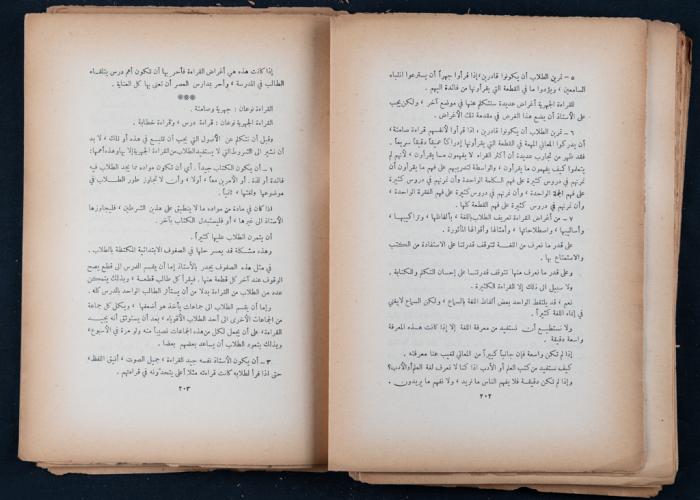 ٥ – تمرين الطلاب أن يكونوا قادرين، إذا قرأوا جهراً أن يسترعوا انتباه
السامعين، ويؤدوا ما في القطعة التي يقرأونها من فائدة اليهم.
للقراءة الجهرية أغراض عديدة سنتكلم عنها في موضع آخر، ولكن يجب
على الأستاذ أن يضع هذا الغرض في مقدمة تلك الأغراض.
٦ – تمرين الطلاب أن يكونوا قادرين، اذا قرأوا لأنفسهم قراءة صامتة،
أن يدركوا المعاني المهمة في القطعة التي يقرأونها إدراكاً عميقاً دقيقاً سريعاً.
فقد ظهر من تجارب عديدة أن أكثر القراء لا يفهمون ما يقرأون، لأنهم لم
يتعلموا كيف يفهمون ما يقرأون، والواسطة لتدريبهم على فهم ما يقرأون أن
نمرنهم في دروس كثيرة على فهم الكلمة الواحدة وأن نمرنهم في دروس كثيرة
على فهم الجملة الواحدة، وأن نمرنهم في دروس كثيرة على فهم الفقرة الواحدة،
وأن نمرنهم في دروس كثيرة على فهم القطعة كلها.
٧ – من أغراض القراءة تعريف الطلاب باللغة، بألفاظها، وتراكيبها،
وأساليبها، واصطلاحاتها، وأمثالها وأقوالها المأثورة.
على قدر ما نعرف من اللغة تتوقف قدرتنا على الاستفادة من الكتب
والاستمتاع بها.
وعلى قدر ما نعرف منها تتوقف قدرتنا على إحسان التكلم والكتابة.
ولا سبيل الى ذلك إلا القراءة الكثيرة.
نعم، قد يلتقط الواحد بعض ألفاظ اللغة بالسماع، ولكن السماع لا يغني
في إناء اللغة كثيراً.
ولا نستطيع أن نستفيد من معرفة اللغة إلا إذا كانت هذه المعرفة
واسعة دقيقة.
إذا لم تكن واسعة فإن جانباً كبيراً من المعاني تغيب عنا معرفته.
كيف نستفيد من كتب العلم أو الأدب اذا كنا لا نعرف لغة العلم أو الأدب؟
وإذا لم تكن دقيقة فلا يفهم الناس ما نريد، ولا نفهم ما يريدون.
٢٠٢
إذا كانت هذه هي أغراض القراءة فأحر بها أن تكون أهم درس يتلقاه
الطالب في المدرسة، وأحر بمدارس العصر أن تعنى بها كل العناية.
***
القراءة نوعان: جهرية وصامتة.
القراءة الجهرية نوعان: قراءة درس، وقراءة خطابة.
وقبل أن نتكلم عن الأصول التي يجب أن تتبع في هذه أو تلك، لا بد
أن نشير الى الشروط التي لا يستفيد الطلاب من القراءة الجهرية إلا بها وهذه أهمها:
١ – أن يكون الكتاب جيداً. أي أن تكون مواده مما يجد الطلاب فيه
فائدة أو لذة. أو الأمرين معاً، أولا، وأن لا تتجاوز طور الطلاب في
موضوعها ولغتها، ثانياً.
اذا كان في مادة من مواده ما لا ينطبق على هذين الشرطين، فليتجاوزها
الأستاذ الى غيرها، أو فليستبدل الكتاب بآخر.
أن يتمرن الطلاب عليها كثيراً.
وهذه مشكلة قد يعسر حلها في الصفوف الابتدائية المكتظة بالطلاب.
في مثل هذه الصفوف يجدر بالأستاذ إما أن يقسم الدرس الى قطع يصح
الوقوف عند آخر كل قطعة منها، فيقرأ كل طالب قطعة، وبذلك يتمكن
عدد من الطلاب من القراءة بدلا من أن يستأثر الطالب الواحد بالدرس كله.
وإما أن يقسم الطلاب الى جماعات يأخذ هو أضعفها، ويكل كل جماعة
من الجماعات الأخرى الى أحد الطلاب الأقوياء، بعد أن يستوثق أنه يجيد
القراءة، على أن يجعل لكل من هذه الجماعات نصيباً منه ولو مرة في الأسبوع،
وبذلك يتعود الطلاب أن يساعد بعضهم بعضا.
٣ – أن يكون الأستاذ نفسه جيد القراءة، جميل الصوت، أنيق اللفظ،
حتى اذا قرأ لطلابه كانت قراءته مثلا أعلى يتحدونه في قراءتهم.
٢٠٣